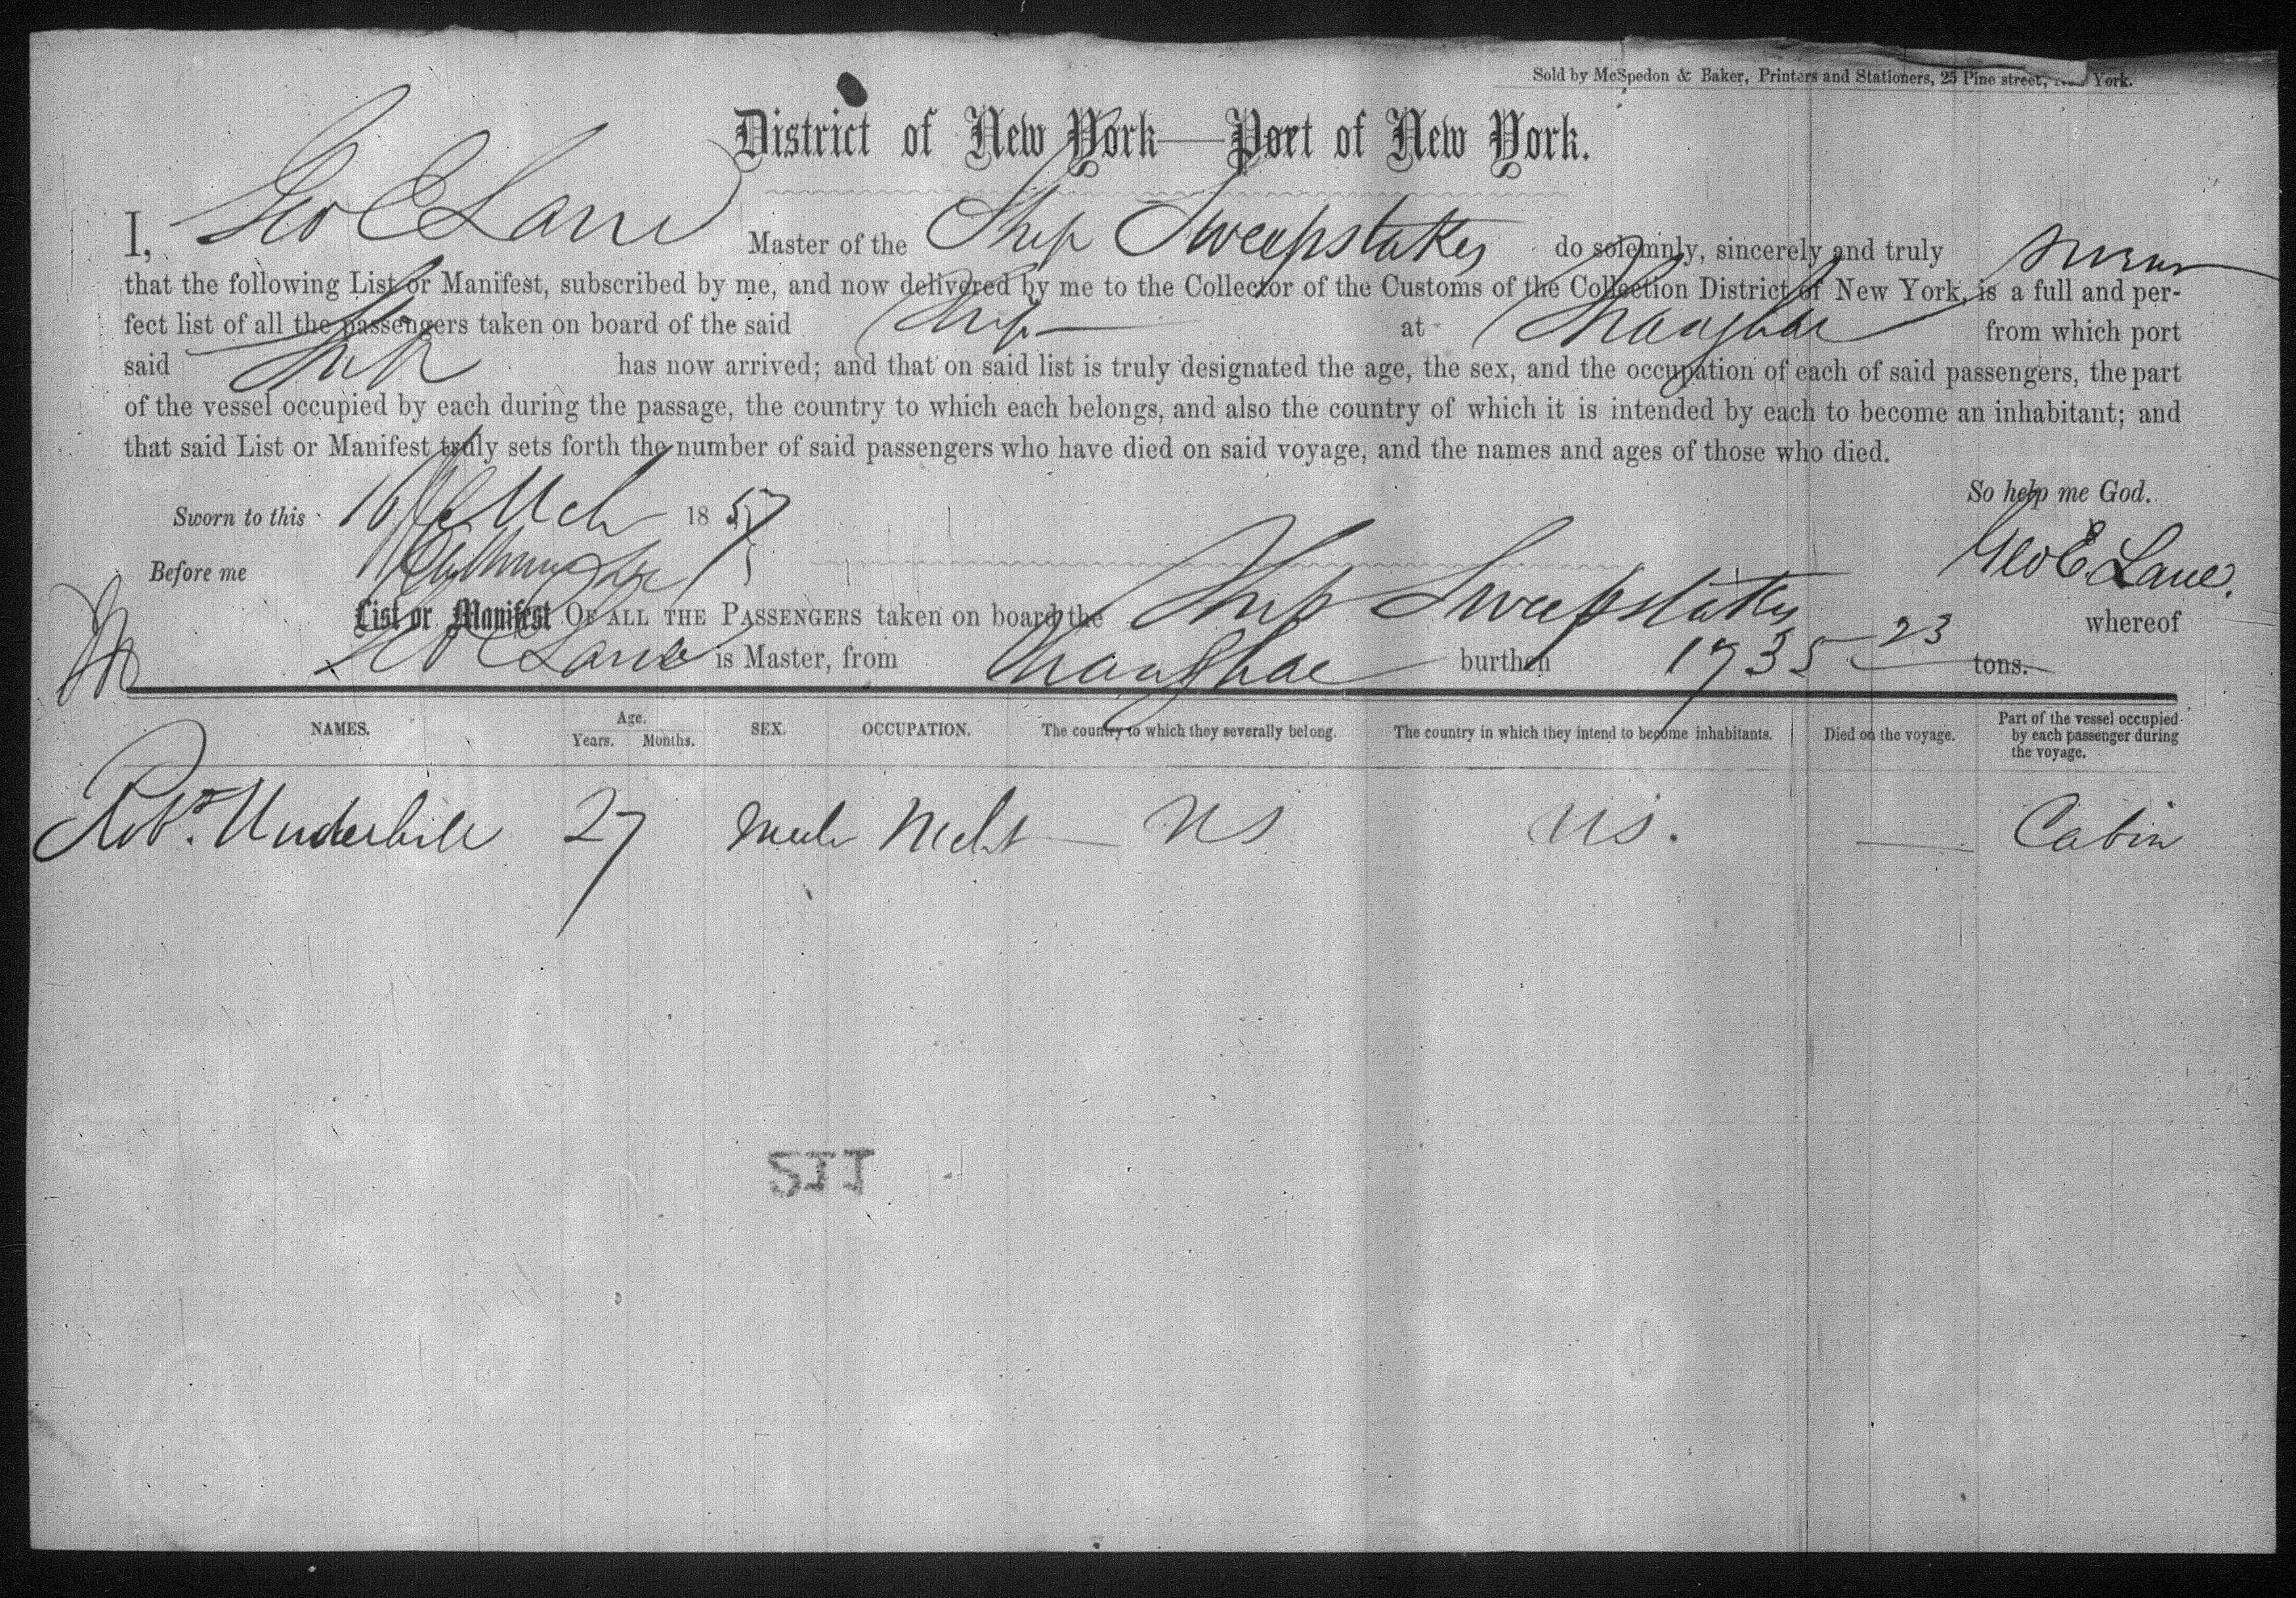 Sold by McSpedon & Baker, Printers and Stationers, 25 Pine street, New York.
District of New York—Port of New York.
I, Geo E Lane Master of the Ship Sweepstakes do solemnly, sincerely and truly swear
that the following List or Manifest, subscribed by me, and now delivered by me to the Collector of the Customs of the Collection District of New York, is a full and per-
fect list of all the passengers taken on board of the said Ship at Shanghae from which port
said Ship has now arrived; and that on said list is truly designated the age, the sex, and the occupation of each of said passengers, the part
of the vessel occupied by each during the passage, the country to which each belongs, and also the country of which it is intended by each to become an inhabitant; and
that said List or Manifest truly sets forth the number of said passengers who have died on said voyage, and the names and ages of those who died.
So help me God.
Sworn to this 16 Mch 1857
Before me
Geo E. Lane.
List or Manifest OF ALL THE PASSENGERS taken on board the Ship Sweepstakes whereof
Geo E Lane is Master, from Shanghae burthen 1735 23 tons.
NAMES. Age. Years. Months. SEX. OCCUPATION. The country to which they severally belong. The country in which they intend to become inhabitants. Died on the voyage. Part of the vessel occupied by each passenger during the voyage.
Robt. Underhill 27 Male Mcht — US US. — Cabin
211